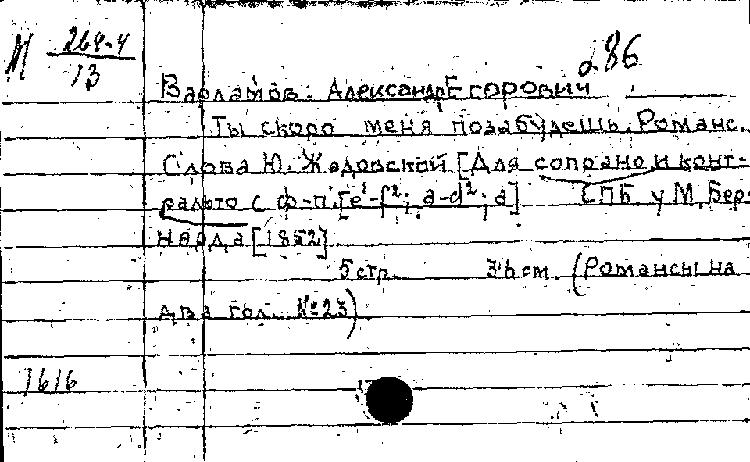 М 264-4
13
286
Варламов. Александр Егорович
Ты скоро меня позабудешь. Романс.
Слова Ю. Жадовской [Для сопрано и конт-
ральто с ф-п. [e¹-f²; a-d²; d] СПБ у М. Бер-
нарда [1852]
5 стр. 36 см. (Романсы на
два гол. № 23)
1616